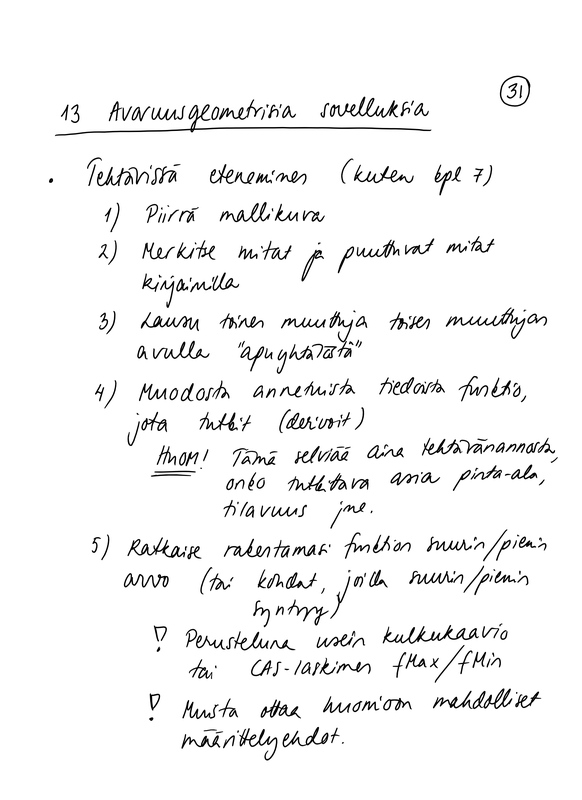 31
13 Avaruusgeometrisia sovelluksia
• Tehtävissä eteneminen (kuten kpl 7)
1) Piirrä mallikuva
2) Merkitse mitat ja puuttuvat mitat
kirjaimilla
3) Lausu toinen muuttuja toisen muuttujan
avulla "apuyhtälöstä"
4) Muodosta annetuista tiedoista funktio,
jota tutkit (derivoit)
HUOM! Tämä selviää aina tehtävänannosta,
onko tutkittava asia pinta-ala,
tilavuus jne.
5) Ratkaise rakentamasi funktion suurin/pienin
arvo (tai kohdat, joilla suurin/pienin
syntyy)
! Perusteluna usein kulkukaavio
tai CAS-laskimen fMax/fMin
! Muista ottaa huomioon mahdolliset
määrittelyehdot.